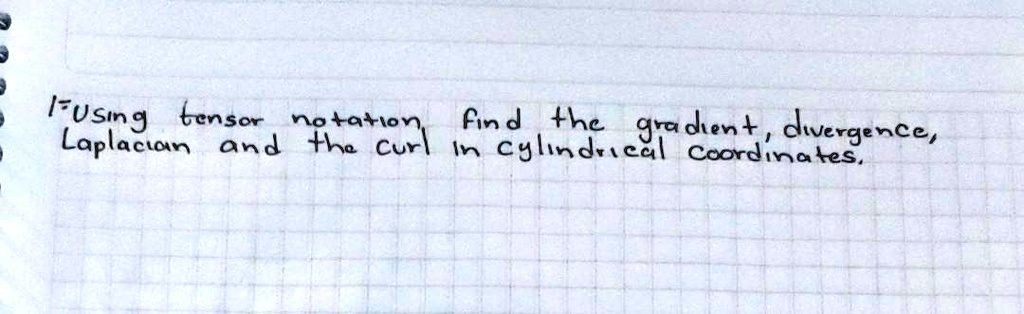 1= Using tensor notation, find the gradient, divergence,
Laplacian and the curl in cylindrical coordinates.